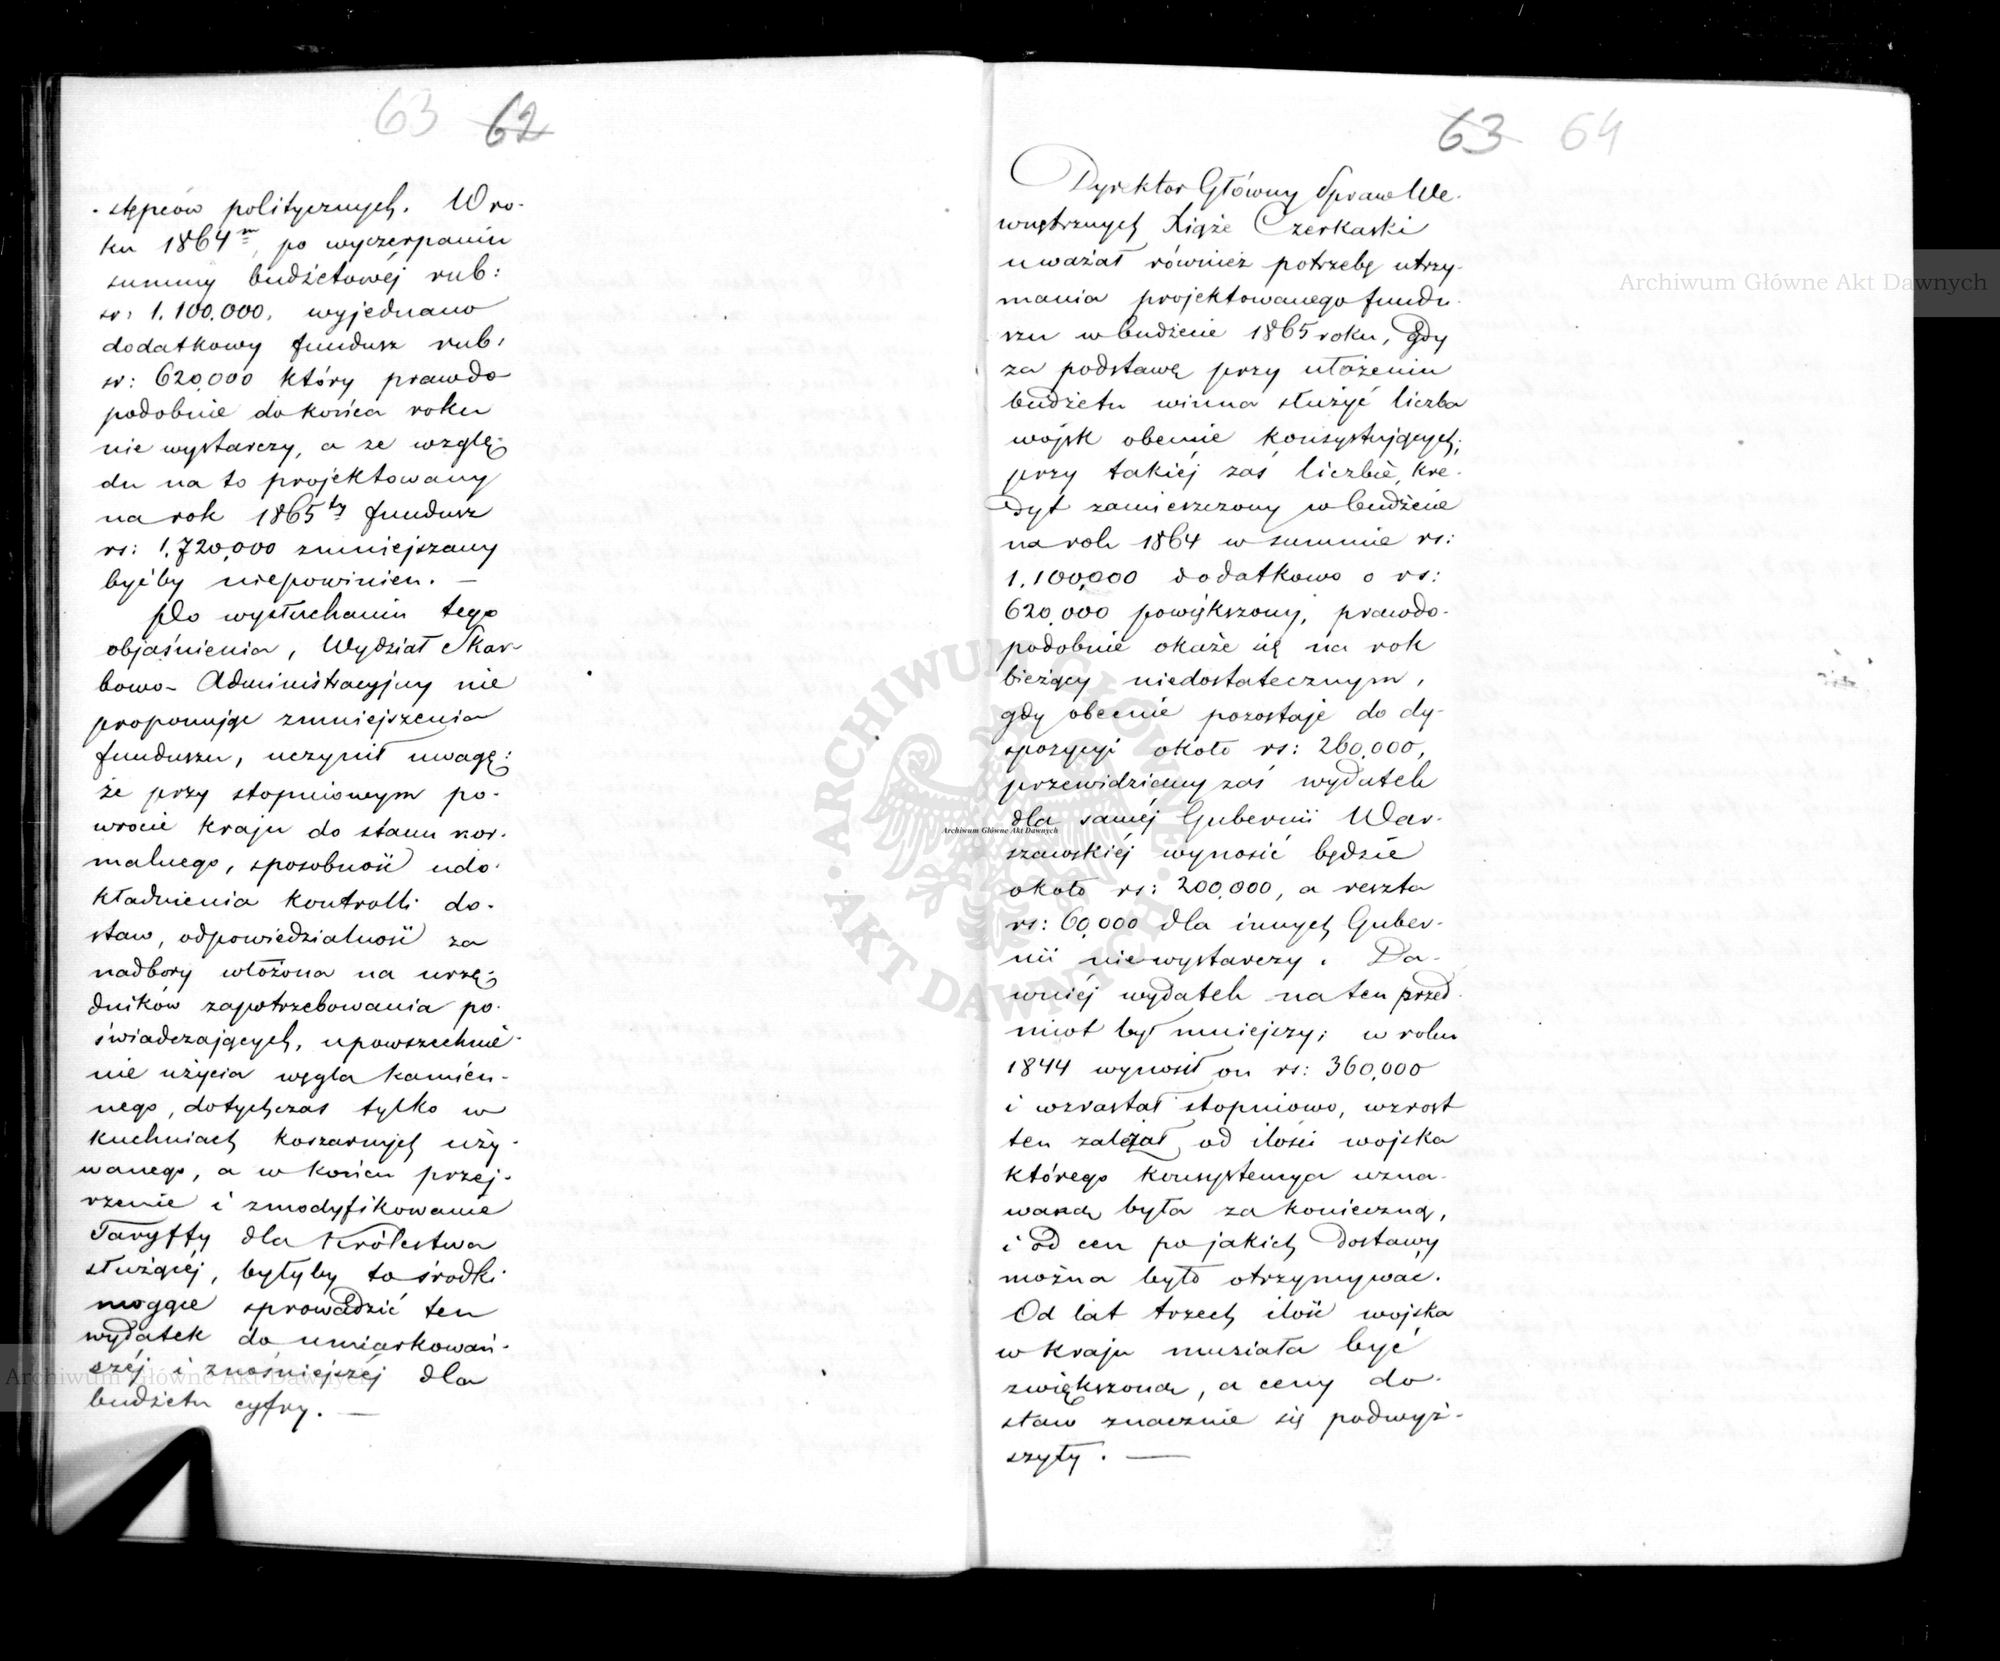 63 62
stępców politycznych. W ro-
ku 1864m, po wyczerpaniu
summy budżetowéj rub:
sr: 1.100.000, wyjednano
dodatkowy fundusz rub:
sr: 620,000 który prawdo
podobnie do końca roku
nie wystarczy, a ze wzglę-
du na to projektowany
na rok 1865ty fundusz
rs: 1,720,000 zmniejszany
byćby niepowinien. —
Po wysłuchaniu tego
objaśnienia, Wydział Skar-
bowo-Administracyjny nie
proponując zmniejszenia
funduszu, uczynił uwagę:
że przy stopniowym po-
wrocie kraju do stanu nor-
malnego, sposobność udo-
kładnienia kontrolli do-
staw, odpowiedzialność za
nadbory włożona na urzę-
dników zapotrzebowania po-
świadczających, upowszechnie-
nie użycia węgla kamien-
nego, dotychczas tylko w
kuchniach koszarnych uży-
wanego, a w końcu przej-
rzenie i zmodyfikowanie
Taryffy dla Królestwa
służącéj, byłyby to środki
mogące sprowadzić ten
wydatek do umiarkowań-
széj i znośniejszéj dla
budżetu cyfry. —
63 64
Dyrektor Główny Spraw We-
wnętrznych Xiąże Czerkaski
uważał również potrzebę utrzy-
mania projektowanego fundu-
szu w budżecie 1865 roku, gdy
za podstawę przy ułożeniu
budżetu winna służyć liczba
wojsk obecnie konsystujących,
przy takiéj zaś liczbie, kre-
dyt zamieszczony w budżecie
na rok 1864 w summie rs:
1.100,000 dodatkowo o rs:
620,000 powiększony, prawdo-
podobnie okaże się na rok
bieżący niedostatecznym,
gdy obecnie pozostaje do dy-
spozycyi około rs: 260,000,
przewidziany zaś wydatek
dla saméj Gubernii War-
szawskiéj wynosić będzie
około rs: 200,000, a reszta
rs: 60,000 dla innych Guber-
nii niewystarczy. Da-
wniéj wydatek na ten przed-
miot był mniejszy; w roku
1844 wynosił on rs: 360,000
i wzrastał stopniowo, wzrost
ten zależał od ilości wojska
którego konsystencya uzna-
waną była za konieczną,
i od cen po jakich dostawy
można było otrzymywać.
Od lat trzech ilość wojska
w kraju musiała być
zwiększoną, a ceny do-
staw znacznie się podwyż-
szyły. —
Archiwum Główne Akt Dawnych
ARCHIWUM SKARBOWE
AKT DAWNYCH
Archiwum Główne Akt Dawnych
Archiwum Główne Akt Dawnych